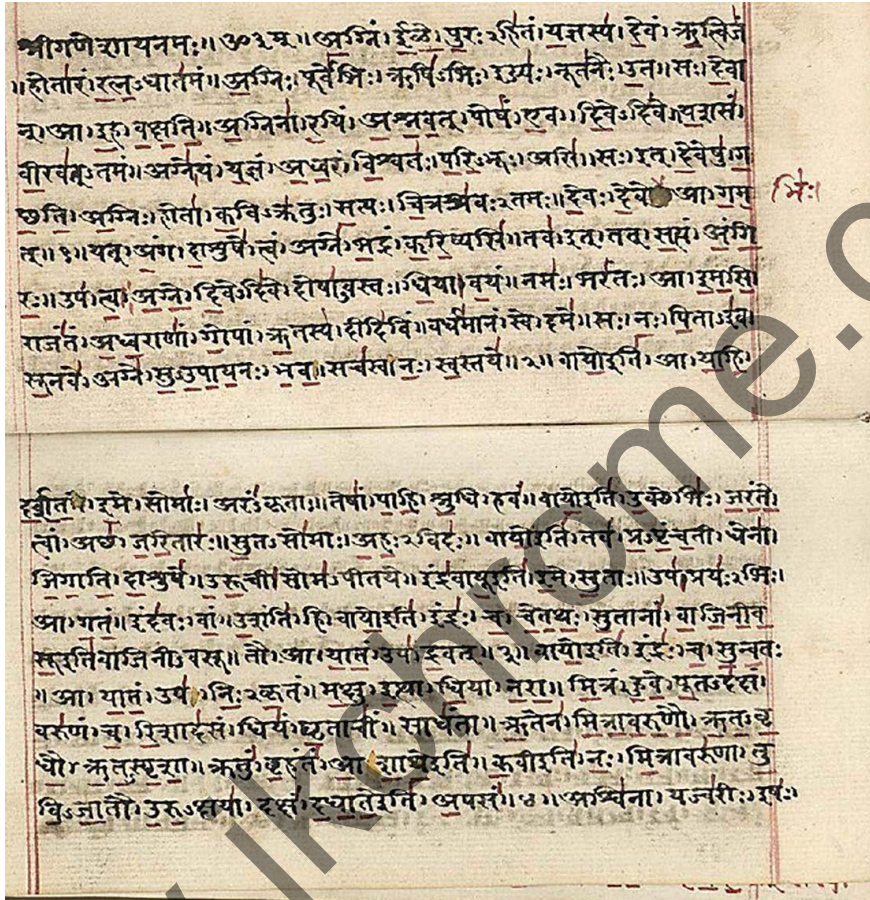 श्रीगणेशायनमः॥ॐ३म्॥अग्निं।ईळे।पुरःऽहितं।यज्ञस्य।देवं।ऋत्विजं
॥होतारं।रत्नऽधातमं॥अग्निः।पूर्वेभिः।ऋषिऽभिः।ईड्यः।नूतनैः।उत॥सः।देवा
न्।आ।इह।वक्षति॥अग्निना।रयिं।अश्नवत्।पोषं।एव।दिवेऽदिवे॥यशसं
वीरवत्ऽतमं॥अग्ने।यं।यज्ञं।अध्वरं।विश्वतः।परिऽभूः।असि॥सः।इत्।देवेषु।ग
च्छति।अग्निः।होता।कविऽक्रतुः।सत्यः।चित्रश्रवःऽतमः॥देवः।देवे आ।गम
भिः।
त्॥१॥यत्।अंग।दाशुषे।त्वं।अग्ने।भद्रं।करिष्यसि॥तव।इत्।तत्।सत्यं।अंगि
रः॥उप।त्वा।अग्ने।दिवेऽदिवे।दोषाऽवस्तः।धिया।वयं॥नमः।भरंतः।आ।इमसि
राजंतं।अध्वराणां।गोपां।ऋतस्य।दीदिविं॥वर्धमानं।स्वे।दमे॥सः।नः।पिताऽइव
सूनवे।अग्ने।सुऽउपायनः।भव॥सचस्व।नः।स्वस्तये॥२॥वायोइति।आ।याहि
दर्शत।इमे।सोमाः।अरंऽकृताः॥तेषां।पाहि।श्रुधि।हवं॥वायोइति।उक्थेभिः।जरंते
त्वां।अच्छ।जरितारः॥सुतऽसोमाः।अहःऽविदः॥वायोइति।तव।प्रऽपृंचती।धेना
जिगाति।दाशुषे॥उरूची।सोमऽपीतये॥इंद्रवायूइति।इमे।सुताः॥उप।प्रयःऽभिः
आ।गतं॥इंदवः।वां।उशंति।हि॥वायोइति।इंद्रः।च।चेतथः।सुतानां।वाजिनीव
सूइतिवाजिनीऽवसू॥तौ।आ।यातं।उप।द्रवत्॥३॥वायोइति।इंद्रः।च।सुन्वतः
॥आ।यातं।उप।निःऽकृतं॥मक्षु।इत्था।धिया।नरा॥मित्रं।हुवे।पूतऽदक्षं
वरुणं।च।रिशादसं॥धियं।घृताचीं।साधंता॥ऋतेन।मित्रावरुणौ।ऋतऽवृ
धौ।ऋतऽस्पृशा॥क्रतुं।बृहंतं।आशाथेइति॥कवीइति।नः।मित्रावरुणा।तु
विऽजातौ।उरुऽक्षया॥दक्षं।दधातेइति।अपसं॥४॥अश्विना।यज्वरीः।इषः